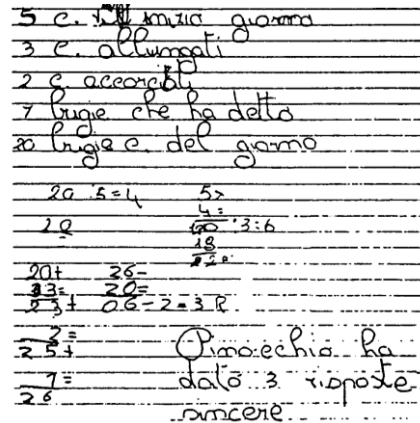 5 c. inizio giorno
3 c. allungati
2 c. accorciati
7 bugie che ha detto
20 bugia c. del giorno
20 : 5 = 4
5 ×
4 =
20
18
: 3 = 6
20 +
3 =
23 +
2 =
25 +
1 =
26
26 -
20 =
06 - 2 = 3 R
Pinocchio ha
dato 3 risposte
sincere